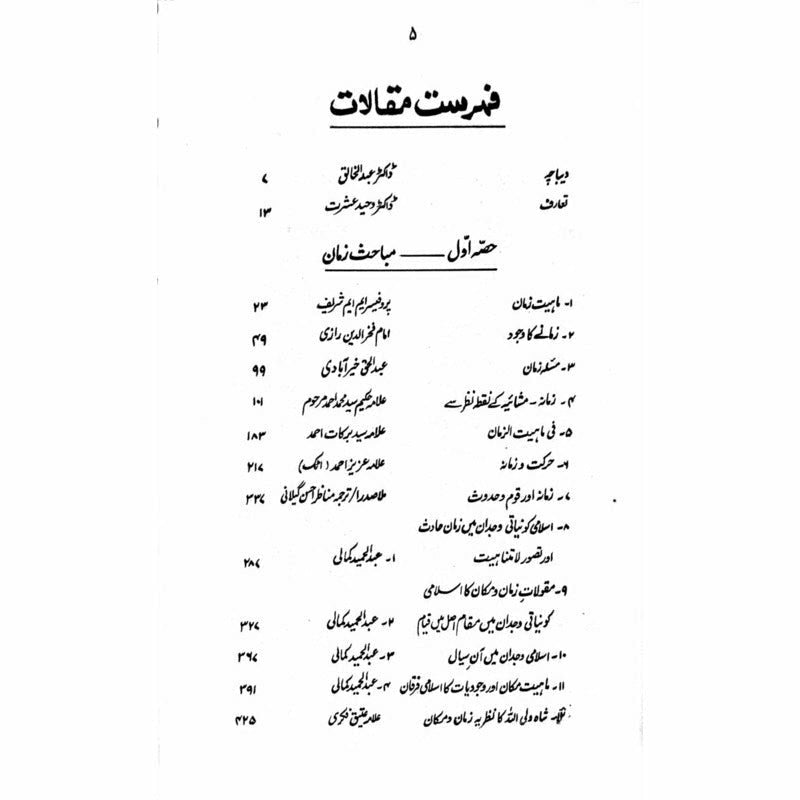 ۵
فہرست مقالات
دیباچہ ڈاکٹر عبدالخالق ۷
تعارف ڈاکٹر وحید عشرت ۱۳
حصہ اوّل —— مباحث زمان
۱۔ ماہیت زمان پروفیسر ایم ایم شریف ۲۳
۲۔ زمانے کا وجود امام فخرالدین رازی ۴۹
۳۔ مسئلہ زمان عبدالحق خیرآبادی ۹۹
۴۔ زمانہ۔ مشائیہ کے نقطہ نظر سے علامہ حکیم سید محمد احمد مرحوم ۱۰۱
۵۔ فی ماہیت الزمان علامہ سید برکات احمد ۱۸۳
۶۔ حرکت و زمانہ علامہ عزیز احمد (اٹک) ۲۱۷
۷۔ زمانہ اور قوم و حدوث ملا صدرا/ترجمہ مناظر احسن گیلانی ۲۳۷
۸۔ اسلامی کونیاتی وجدان میں زمان حادث
اور تصور لاتناہیت ۱۔ عبدالحمید کمالی ۲۸۷
۹۔ مقولاتِ زمان و مکان کا اسلامی
کونیاتی وجدان میں مقام اصل میں قیام ۲۔ عبدالحمید کمالی ۳۲۷
۱۰۔ اسلامی وجدان میں آنِ سیال ۳۔ عبدالحمید کمالی ۳۶۷
۱۱۔ ماہیت مکان اور وجودیات کا اسلامی فرقان ۴۔ عبدالحمید کمالی ۳۹۱
شاہ ولی اللہ کا نظریہ زمان و مکان علامہ عتیق فکری ۴۲۵